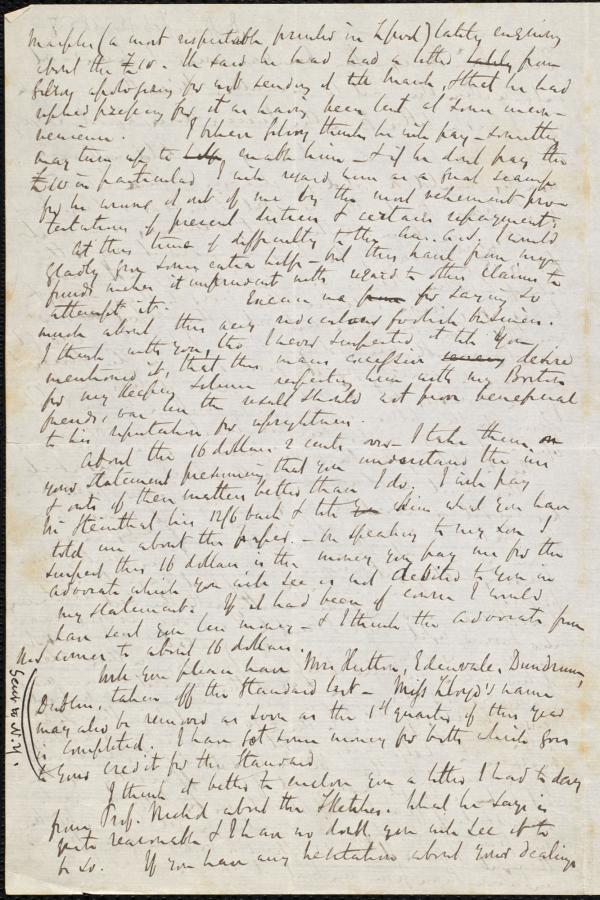 (a most respectable printer in L'pool) lately enquiring
about the £10. He said he had had a letter from
apologising for not sending it till March, & that he had
for it as having been lent at some incon-
venience. I believe thinks he will pay - something
may turn up to enable him - & if he dont pay the
£10 in particular I will regard him as a great scamp
for he wrung it out of me by the most vehement pro-
testations of present distress & certain repayment.
At this time of difficulty to the Am. A.S. I would
gladly give some extra help - but this haul from my
funds makes it imprudent with regard to other claims to
attempt it. Excuse me for saying so
much about this very ridiculous foolish business.
I think with you, tho' I never suspected it till you
mentioned it, that this man's excessive desire
for my keeping silence respecting him with my British
friends, was lest the result should not prove beneficial
to his reputation for uprightness.
About the 16 dollars 2 cents over - I take them on
your statement presuming that you understand the ins
& outs of these matters better than I do. I will pay
Mr Steinthal his 12/6 back & tell him what you have
told me about the papers. - On speaking to my son I
suspect this 16 dollars is the money you pay me for the
advocate which you will see is not debited to you in
my statement. If it had been of course I would
have sent you less money - & I think the advocate
comes to about 16 dollars.
Will you please have Mrs Hutton, Edenvale, Dundrum,
Dublin, taken off the Standard list - Miss Lloyd's name
may also be removed as soon as the 1st quarter of this year
is completed. I have got some money for both which goes
to your credit for the Standard
I think it better to enclose you a letter I had to day
from Prof. Nichol about the Sketches. What he says is
quite reasonable & I have no doubt you will see it to
be so. If you have any hesitation about your dealings